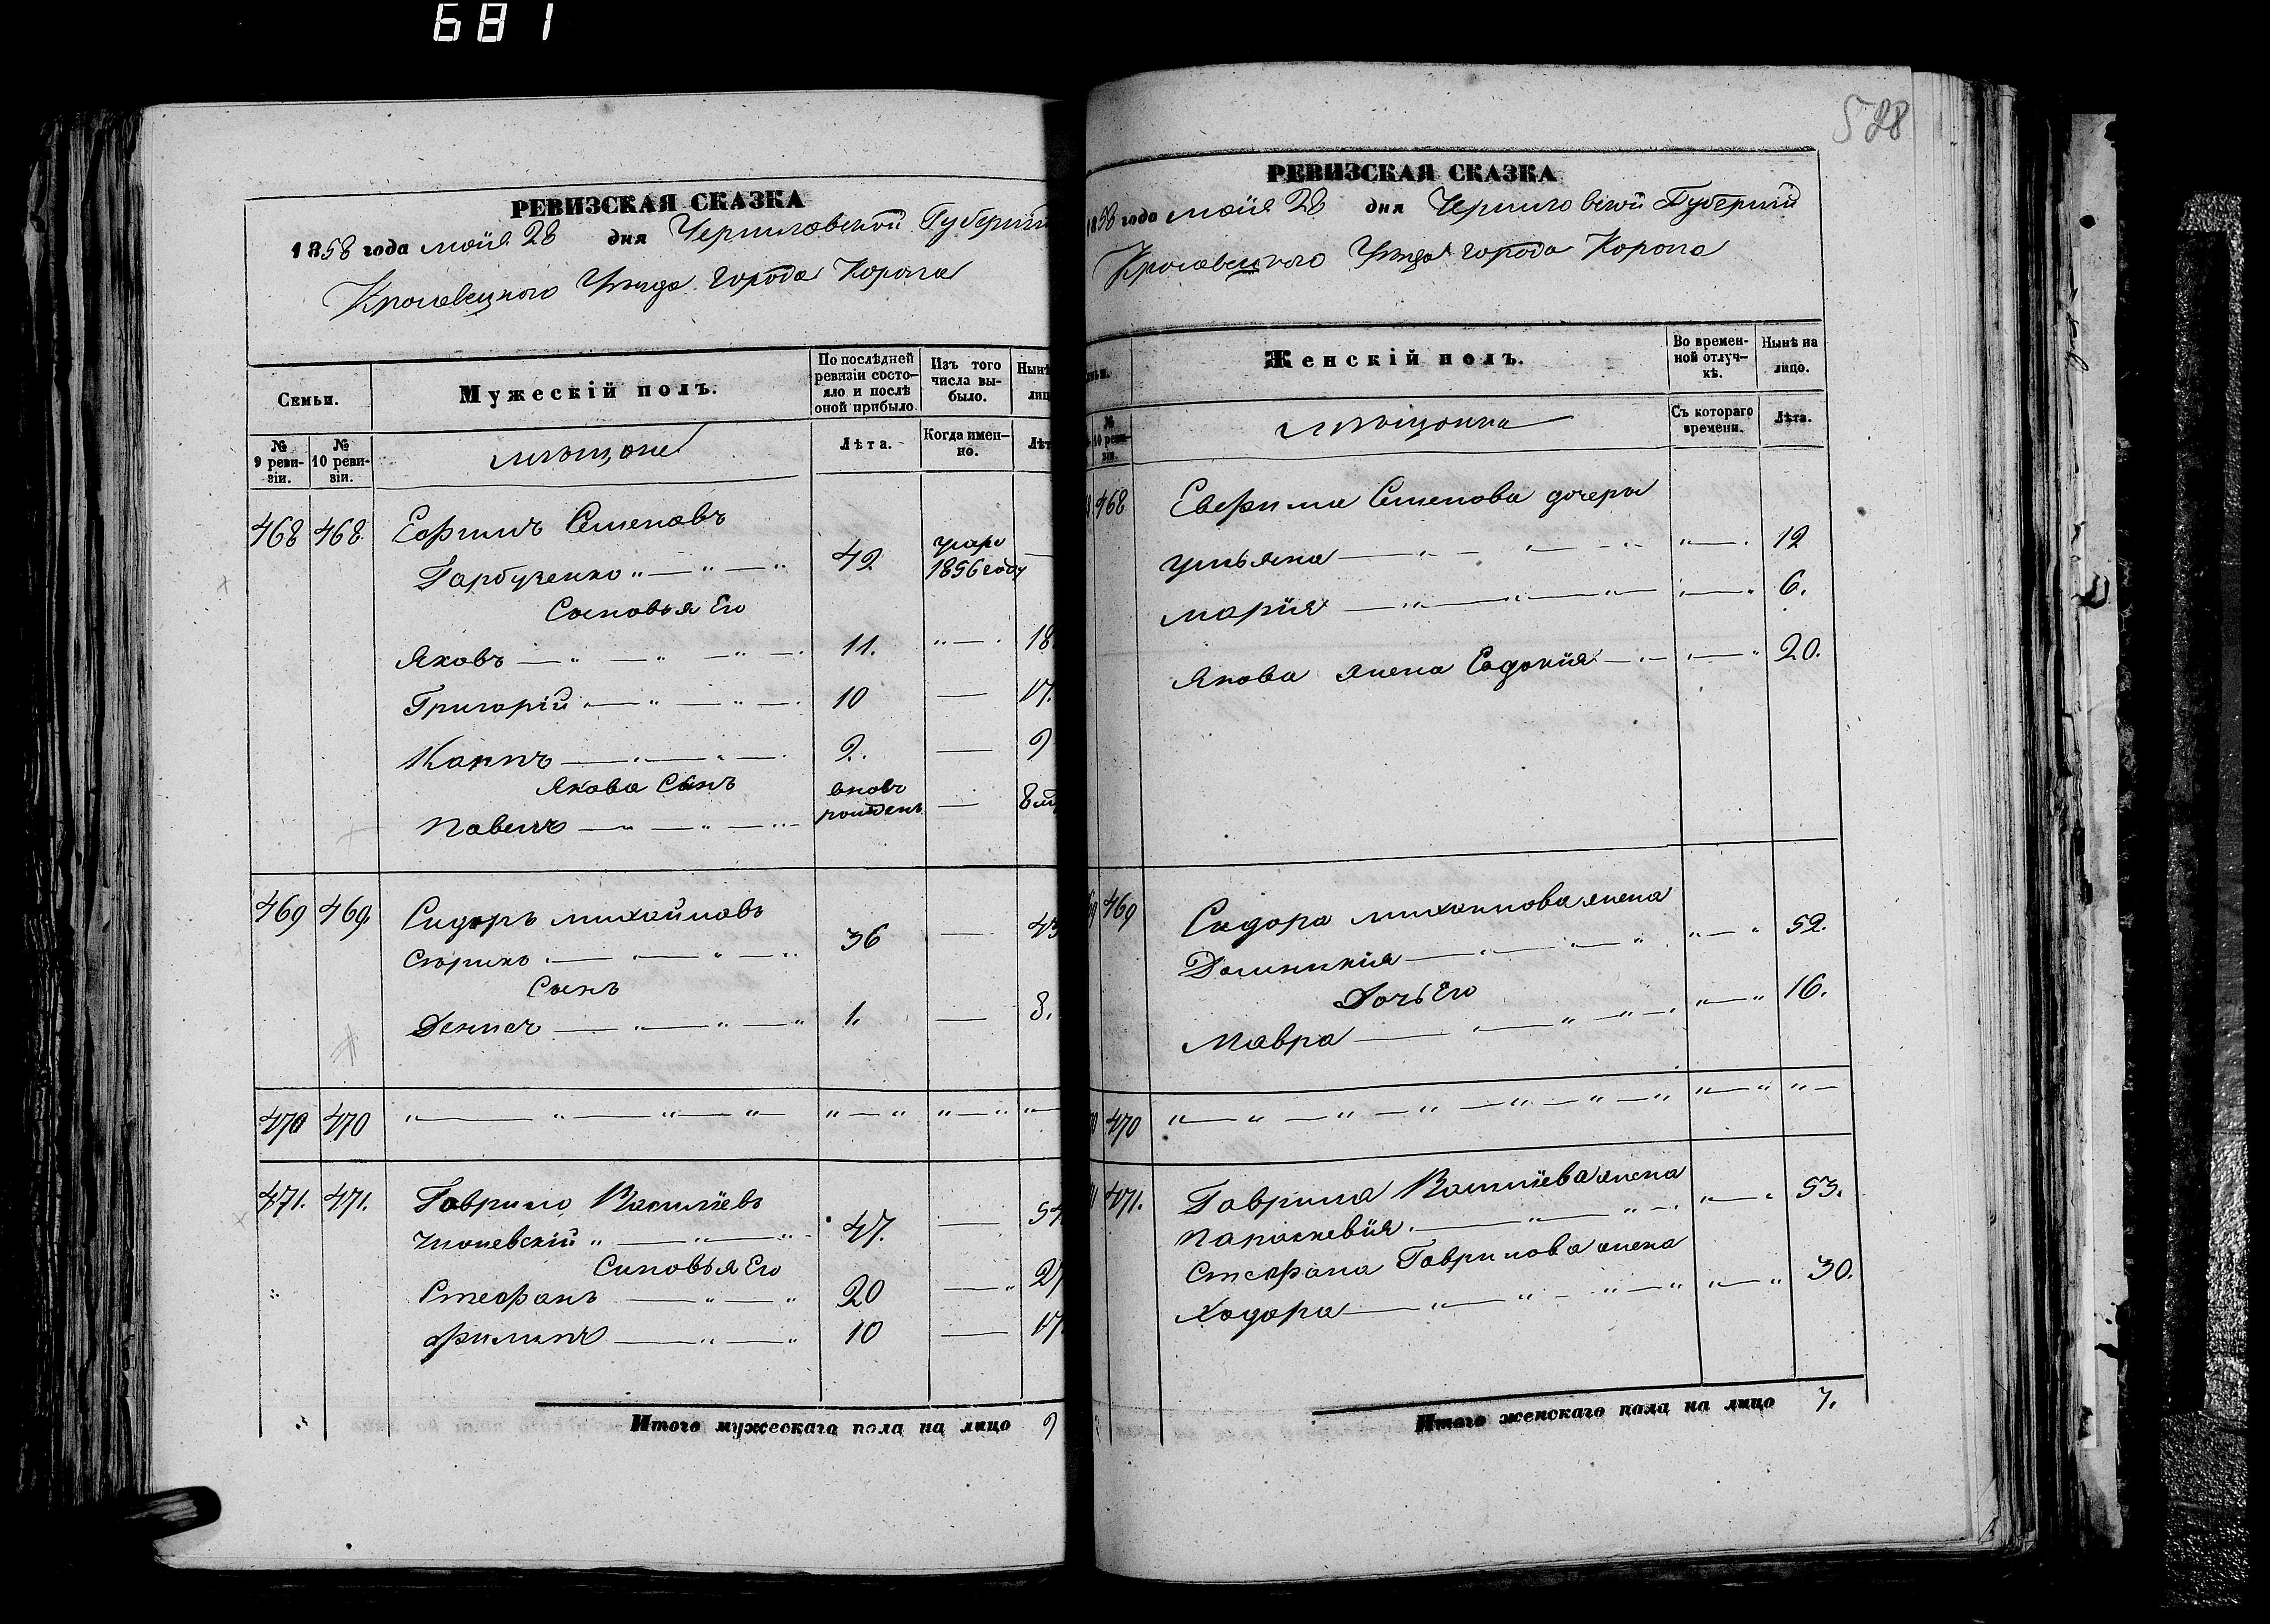 681
528
РЕВИЗСКАЯ СКАЗКА
1858 года мая 28 дня Черниговской Губерніи
Кролевецкого Уезда города Коропа
Семьи.
Мужескій полъ.
По послѣдней ревизіи состояло и послѣ оной прибыло
Изъ того числа выбыло.
Нынѣ
лиц
№ 9 ревизіи.
№ 10 ревизіи.
мѣщане
Лѣта.
Когда именно.
Лѣт
468 468 Ефимъ Семеновъ
Гарбузенко 42 умре 1856 году
Сыновья Его
Яковъ 11. 18
Григорій 10 17.
Карпъ 2. 9
Якова Сынъ
Павелъ вновь рожденъ 8 м
469 469. Сидоръ Михайловъ
36 43
Сынъ
Денис 1. 8.
470 470
471. 471. Гаврило Василіевъ
47. 54
Сыновья Его
Стефанъ 20 27
Филипъ 10 17
Итого мужескаго пола на лицо 9
РЕВИЗСКАЯ СКАЗКА
1858 года мая 28 дня Черниговской Губерніи
Кролевецкого Уезда города Коропа
Женскій полъ.
Во временной отлучкѣ.
Нынѣ на лицо.
№ 10 ревизіи.
мѣщанки
Съ котораго времени.
Лѣта.
468 Ефима Семенова дочери
Ульяна 12
Марія 6.
Якова жена Евдокія 20.
469 Сидора Михайлова жена
Домникія 52.
Дочь Его
Мавра 16.
470
471. Гаврила Василіева жена
Параскевія 53.
Стефана Гаврилова жена
Ходора 30.
Итого женскаго пола на лицо 7.